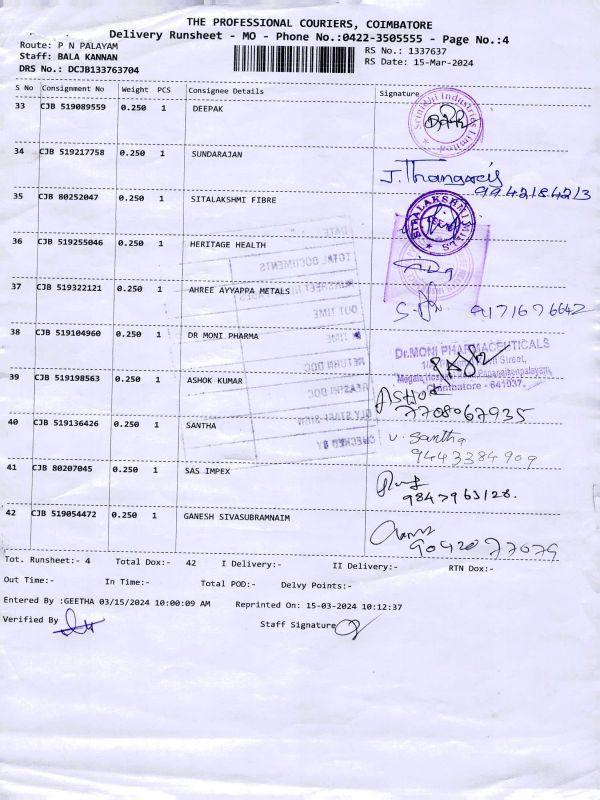 THE PROFESSIONAL COURIERS, COIMBATORE
Delivery Runsheet - MO - Phone No.:0422-3505555 - Page No.:4
Route: P N PALAYAM
RS No.: 1337637
Staff: BALA KANNAN
RS Date: 15-Mar-2024
DRS No.: DCJB133763704
S No Consignment No Weight PCS Consignee Details Signature
33 CJB 519089559 0.250 1 DEEPAK
34 CJB 519217758 0.250 1 SUNDARAJAN
J. Thangaraj
9942184213
35 CJB 80252047 0.250 1 SITALAKSHMI FIBRE
36 CJB 519255046 0.250 1 HERITAGE HEALTH
37 CJB 519322121 0.250 1 AHREE AYYAPPA METALS
9171676642
38 CJB 519104960 0.250 1 DR MONI PHARMA
Dr.MONI PHARMACEUTICALS
Street,
Papanaickenpalayam,
Coimbatore - 641037.
39 CJB 519198563 0.250 1 ASHOK KUMAR
ASHOK
7708067935
40 CJB 519136426 0.250 1 SANTHA
v. santha
9443384909
41 CJB 80207045 0.250 1 SAS IMPEX
9847963128.
42 CJB 519054472 0.250 1 GANESH SIVASUBRAMNAIM
9042077079
Tot. Runsheet:- 4 Total Dox:- 42 I Delivery:- II Delivery:- RTN Dox:-
Out Time:- In Time:- Total POD:- Delvy Points:-
Entered By :GEETHA 03/15/2024 10:00:09 AM Reprinted On: 15-03-2024 10:12:37
Verified By
Staff Signature